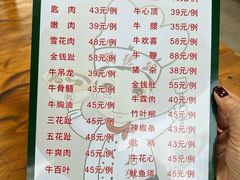 匙肉 43元/例 牛心顶 39元/例
嫩肉 39元/例 牛腰 35元/例
雪花肉 48元/例 牛欢喜 58元/例
金钱趾 58元/例 牛鞭 88元/例
牛吊龙 39元/例 猪杂 38元/例
牛骨腿 43元/例 金钱肚 55元/例
牛胸油 43元/例 牛霖肉 40元/例
三花趾 45元/例 竹叶柳 45元/例
五花趾 48元/例 辣椒条 43元/例
牛爽肉 45元/例 匙柄 45元/例
牛百叶 45元/例 牛花心 45元/例
鱿鱼须 45元/例